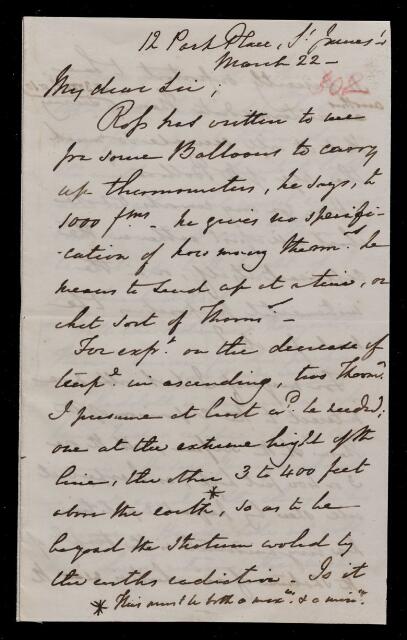 12 Park Place, St James's
March 22 -
302
My dear Sir;
Ross has written to me
for some Balloons to carry
up thermometers, he says, to
1000 fms. - he gives no specifi-
-cation of how many thermrs. he
means to send up at a time, or
what sort of Thermr. -
For expt. on the decrease of
tempe. in ascending, two Thermrs.
I presume at least wd. be needed;
one at the extreme height of the
line, the other 3 to 400 feet
above the earth*, so as to be
beyond the Stratum cooled by
the earths radiation. Is it
* This must be both a maxm. & a minm.